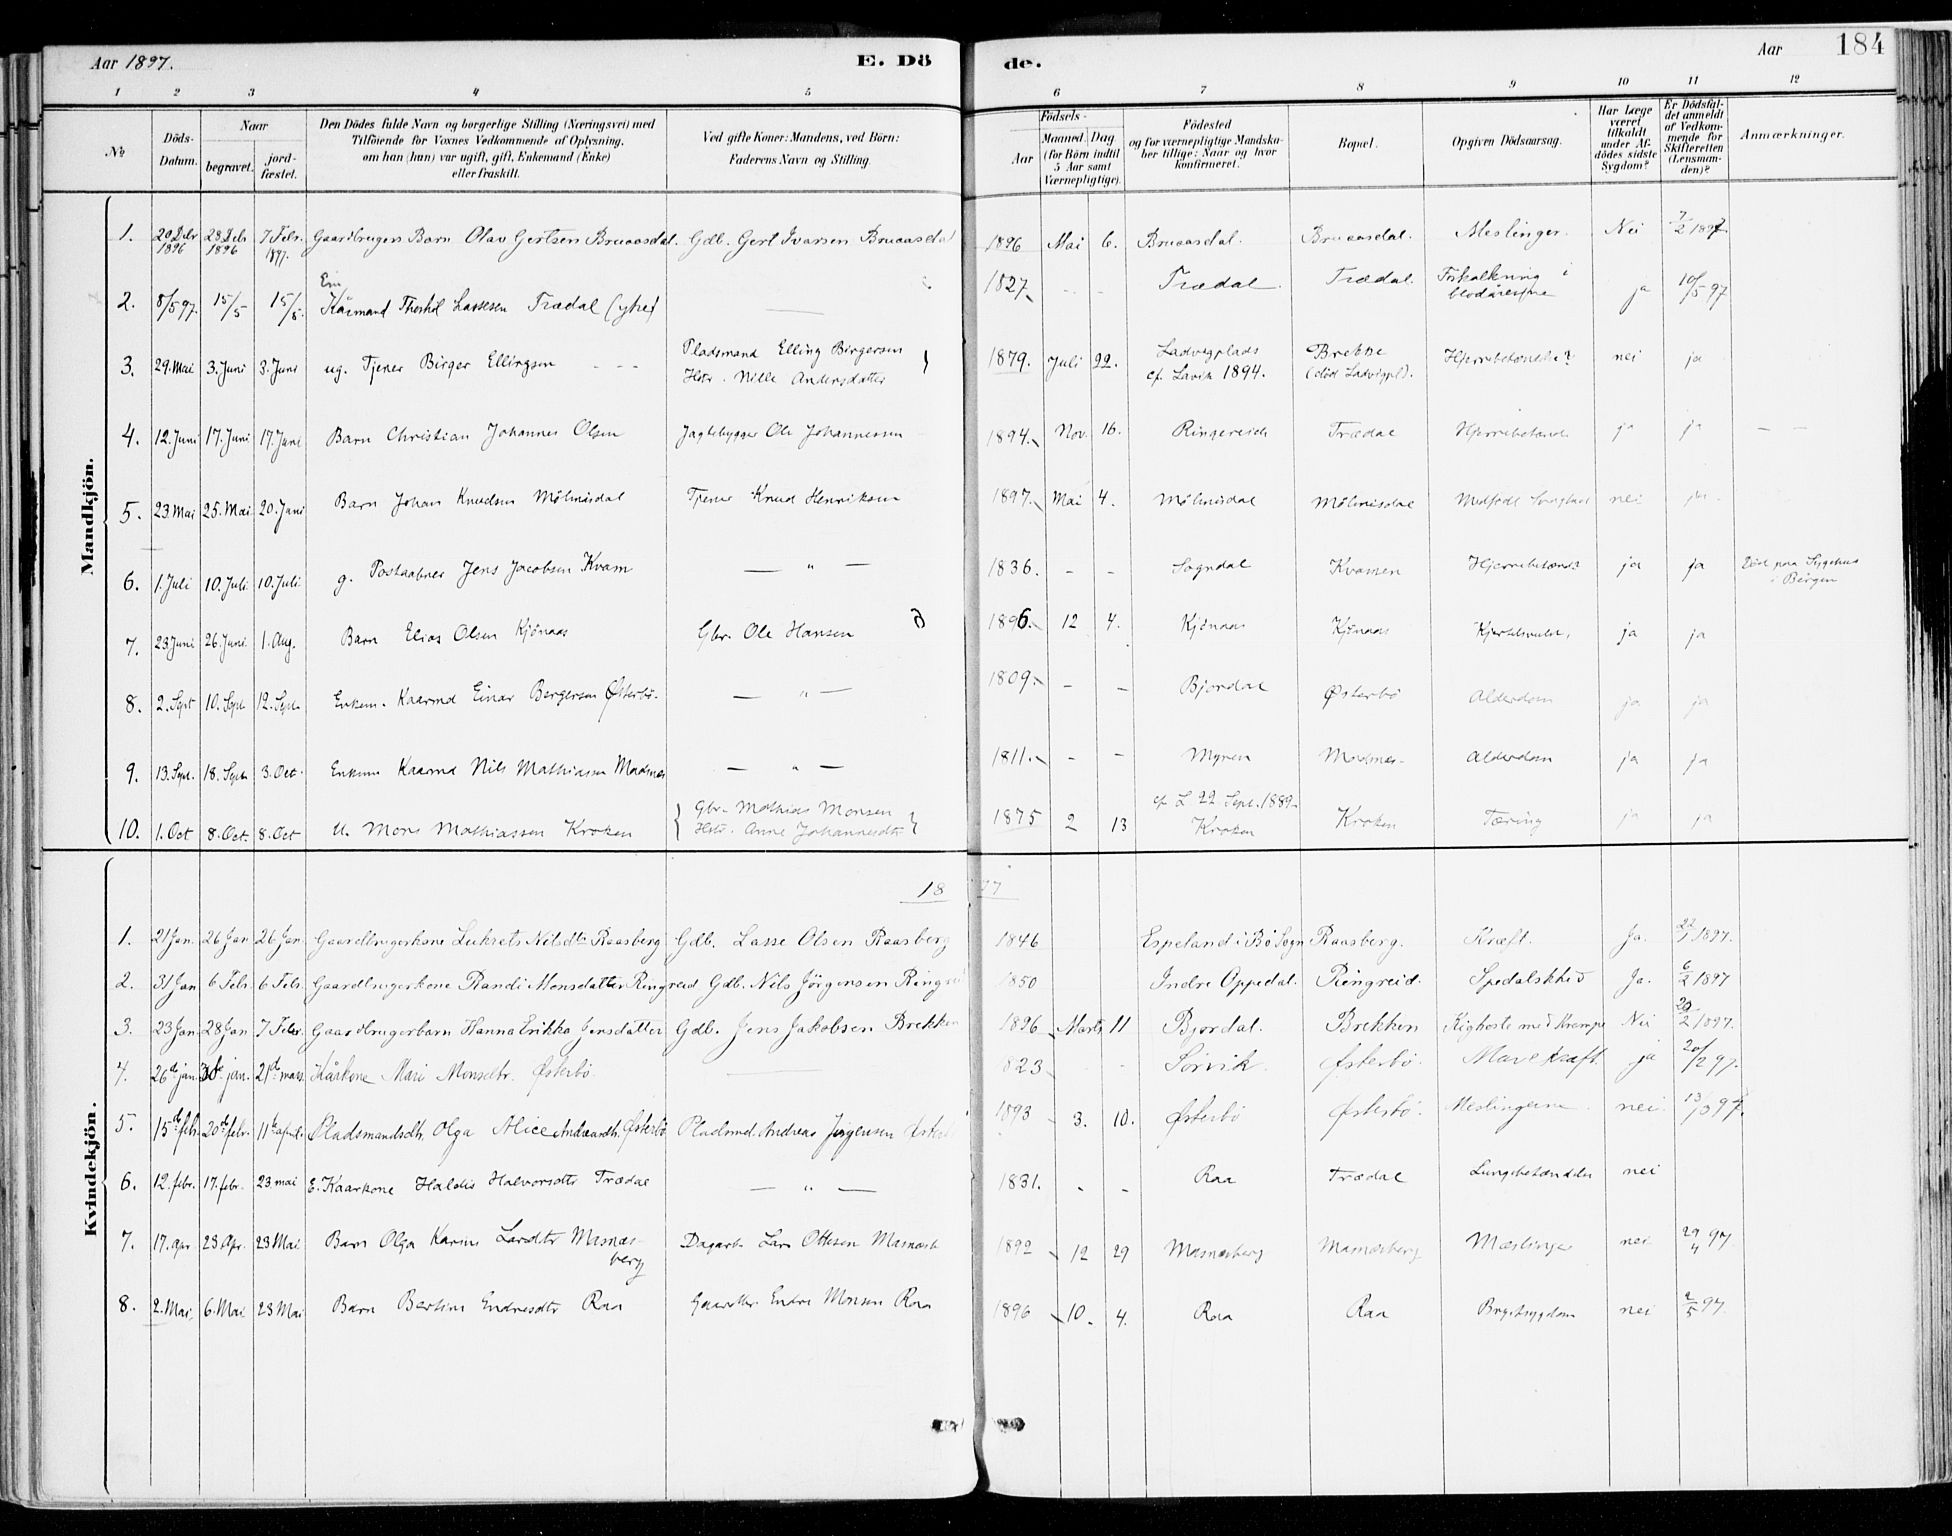 Aar 1897. E. Dö de. Aar 184
1 2 3 4 5 6 7 8 9 10 11 12
№ Döds-Datum. Naar begravet. jordfæstet. Den Dödes fulde Navn og borgerlige Stilling (Næringsvei) med Tilföiende for Voxnes Vedkommende af Oplysning, om han (hun) var ugift, gift, Enkemand (Enke) eller fraskilt. Ved gifte Koner: Mandens, ved Börn: Faderens Navn og Stilling. Födsels- Aar Maaned. Dag (for Börn indtil 5 Aar samt Værnepligtige). Födested og for værnepligtige Mandskaber tillige: Naar og hvor konfirmeret. Bopæl. Opgiven Dödsaarsag. Har Læge været tilkaldt under Afdödes sidste Sygdom? Er Dödsfaldet anmeldt af Vedkommende for Skifteretten (Lensmanden)? Anmærkninger.
Mandkjön.
1. 20 Debr 1896 28 Deb 1896 7 Febr. 1897. Gaardbrugers Barn Olav Gertsen Bruaasdal. Gdb. Gert Ivarsen Bruaasdal 1896 Mai 6. Bruaasdal. Bruaasdal. Meslinger. Nei 7/2 1897
2. 8/5 97. 15/5 15/5. Em Kårmand Thorkil Lassesen Trædal (ytre) 1827. - - Trædal. Trædal. Forkalkning i blodårerne ja 10/5 97
3. 29. Mai 3. Juni 3. Juni ug. Tjener Birger Ellingsen - - - Pladsmand Elling Birgersen Hstr. Nille Andersdatter 1879. Juli 22. Ladvigplads cf. Lavik 1894. Brekke (död Ladvigpl). Hjernebetændelse? nei ja
4. 12. Juni 17. Juni 17. Juni Barn Christian Johannes Olsen Jagtebygger Ole Johannessen 1894. Nov. 16. Ringereide Trædal Hjernebetænd ja ja - -
5. 23. Mai 25. Mai 20. Juni Barn Johan Knudsen Mölmesdal Tjener Knud Henriksen 1897. Mai 4. Mölmesdal Mölmesdal Medfödt Svaghed nei ja
6. 1. Juli 10. Juli 10. Juli g. Postaabner Jens Jacobsen Kvam — " — 1836. - - Sogndal Kvamen Hjernebetænd. ja ja Död paa Sygehus i Bergen
7. 23. Juni 26. Juni 1. Aug. Barn Elias Olsen Kjönaas Gbr. Ole Hansen 1896. 12 4. Kjönaas Kjönaas ja ja
8. 2. Sept 10. Sept 12. Sept. Enkem. Kaarmd Einar Bergersen Østerbö. — " — 1809. - - Bjordal Østerbö Alderdom ja ja
9. 13. Sept. 18. Sept. 3. Oct. Enkem Kaarmd Nils Mathiassen Modnæs — " — 1811. - - Myren Modnæs Alderdom ja ja
10. 1. Oct 8. Oct. 8. Oct U. Mons Mathiassen Kroken Gbr. Mathias Monsen Hstr. Anne Johannesdtr 1875 2 13 cf L 22 Sept. 1889 Kroken Kroken Tæring ja ja
Kvindekjön.
18 97
1. 21 Jan. 26 Jan 26 Jan. Gaardbrugerkone Lukrets Nilsdtr Raasberg Gdb. Lasse Olsen Raasberg 1846 Espeland i Bö Sogn Raasberg. Kræft. Ja. 22/1 1897.
2. 31 Jan 6 Febr. 6 Febr. Gaardbrugerkone Randi Monsdatter Ringreid Gdb. Nils Jörgensen Ringreid 1850 Indre Oppedal. Ringreid. Spedalskhed Ja. 6/2 1897
3. 23 Jan. 28 Jan 7 Febr. Gaardbrugerbarn Hanna Erikka Jensdatter Gdb. Jens Jakobsen Brekken 1896 Marts 11 Bjordal. Brekken Kighoste med Krampe Nei 20/2 1897.
4. 26de jan. 30te jan. 21de mars. Kårkone Mari Monsdtr. Østerbö. 1823 Sørvik. Østerbö. Mavekræft. ja 20/2 97.
5. 15de febr. 20de febr. 11te april. Pladsmandsdtr. Olga Alice Andreasdtr. Østerbö Pladsmd. Andreas Jørgensen Østerbö 1893 3. 10. Østerbö Østerbö. Meslingerne. nei. 13/3 97.
6. 12. febr. 17. febr. 23 mai E. Kaarkone Haldis Halvorsdtr Trædal — " — 1831. - - Raa Trædal Lungebetændelse nei
7. 17. apr. 23. Apr. 23 Mai Barn Olga Karine Larsdtr Masnæsberg Dagarb. Lars Ottesen Masnæsb 1892 12 29 Masnæsberg Masnæsberg Mæslinger nei 29/4 97.
8. 2. Mai. 6. Mai 23 Mai Barn Bertine Endresdtr Raa Gaardbr. Endre Monsen Raa 1896 10. 4. Raa Raa Brystsygdom nei 2/5 97.